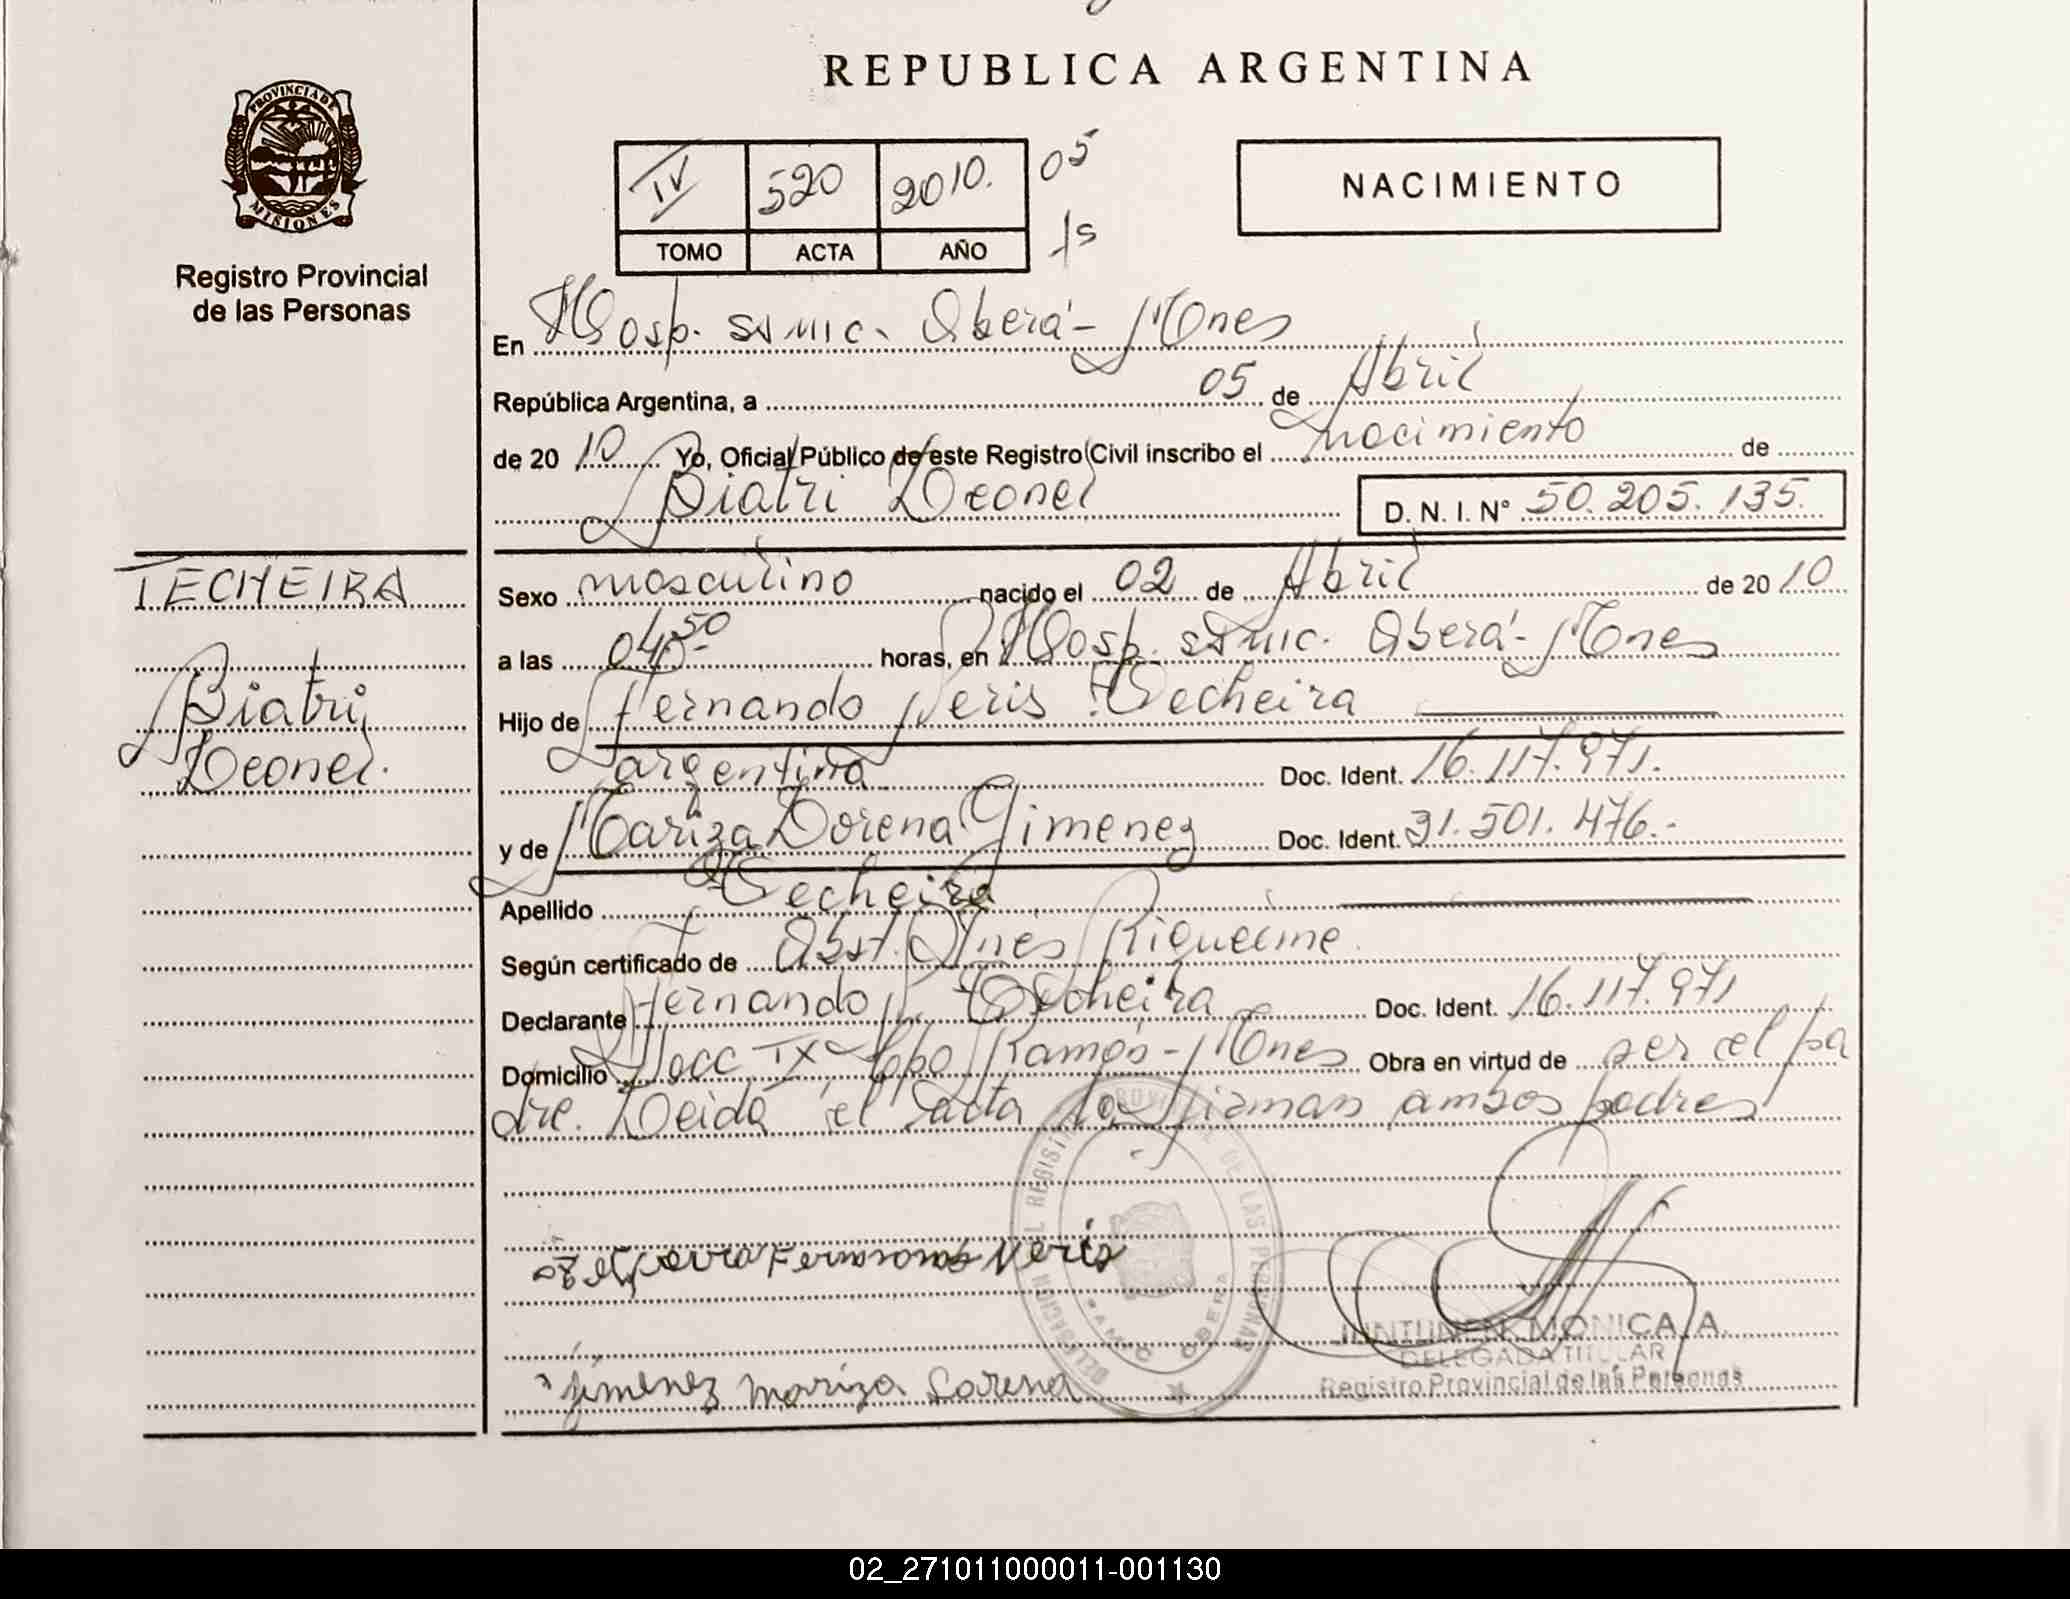 REPUBLICA ARGENTINA
PROVINCIA DE
MISIONES
Registro Provincial
de las Personas
IV 520 2010. 05
TOMO ACTA AÑO
NACIMIENTO
En Hosp. SAMIC. Oberá - Mnes
República Argentina, a 05 de Abril
de 20 10 Yo, Oficial Público de este Registro Civil inscribo el nacimiento de
Piatri Leonel D. N. I. N° 50.205.135.
TECHEIRA
Piatri
Leonel.
Sexo masculino nacido el 02 de Abril de 20 10
a las 04,50 horas, en Hosp. SAMIC. Oberá - Mnes
Hijo de Hernando Neris Techeira
argentina Doc. Ident. 16.117.971.
y de Mariza Lorena Gimenez Doc. Ident. 31.501.476.-
Apellido Techeira
Según certificado de Obst. Ines Riquelme.
Declarante Hernando N. Techeira Doc. Ident. 16.117.971
Domicilio Secc. IX - Cpo Ramón - Mnes Obra en virtud de ser el pa
dre. Leida el acta la firman ambos padres
Neris
Jimenez Mariza Lorena
MONICA A.
DELEGADA TITULAR
Registro Provincial de las Personas
02_271011000011-001130